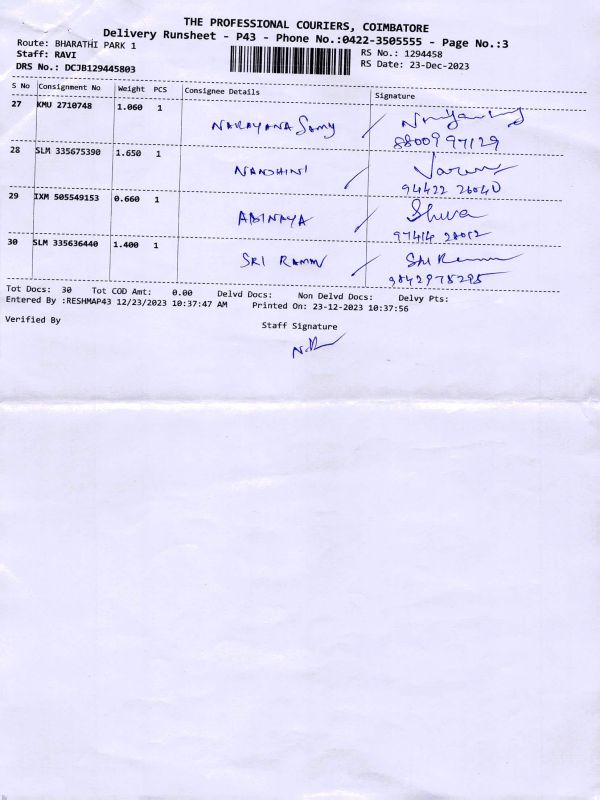 THE PROFESSIONAL COURIERS, COIMBATORE
Delivery Runsheet - P43 - Phone No.:0422-3505555 - Page No.:3
Route: BHARATHI PARK 1 RS No.: 1294458
Staff: RAVI RS Date: 23-Dec-2023
DRS No.: DCJB129445803
S No Consignment No Weight PCS Consignee Details Signature
27 KMU 2710748 1.060 1
NARAYANA Samy /
8800997129
28 SLM 335675390 1.650 1
NANDHINI / Varun
94422 26040
29 IXM 505549153 0.660 1
ABINAYA / Shiva
97414 28012
30 SLM 335636440 1.400 1
SRI RAMM / Sri Ramm
9842978295
Tot Docs: 30 Tot COD Amt: 0.00 Delvd Docs: Non Delvd Docs: Delvy Pts:
Entered By :RESHMAP43 12/23/2023 10:37:47 AM Printed On: 23-12-2023 10:37:56
Verified By Staff Signature